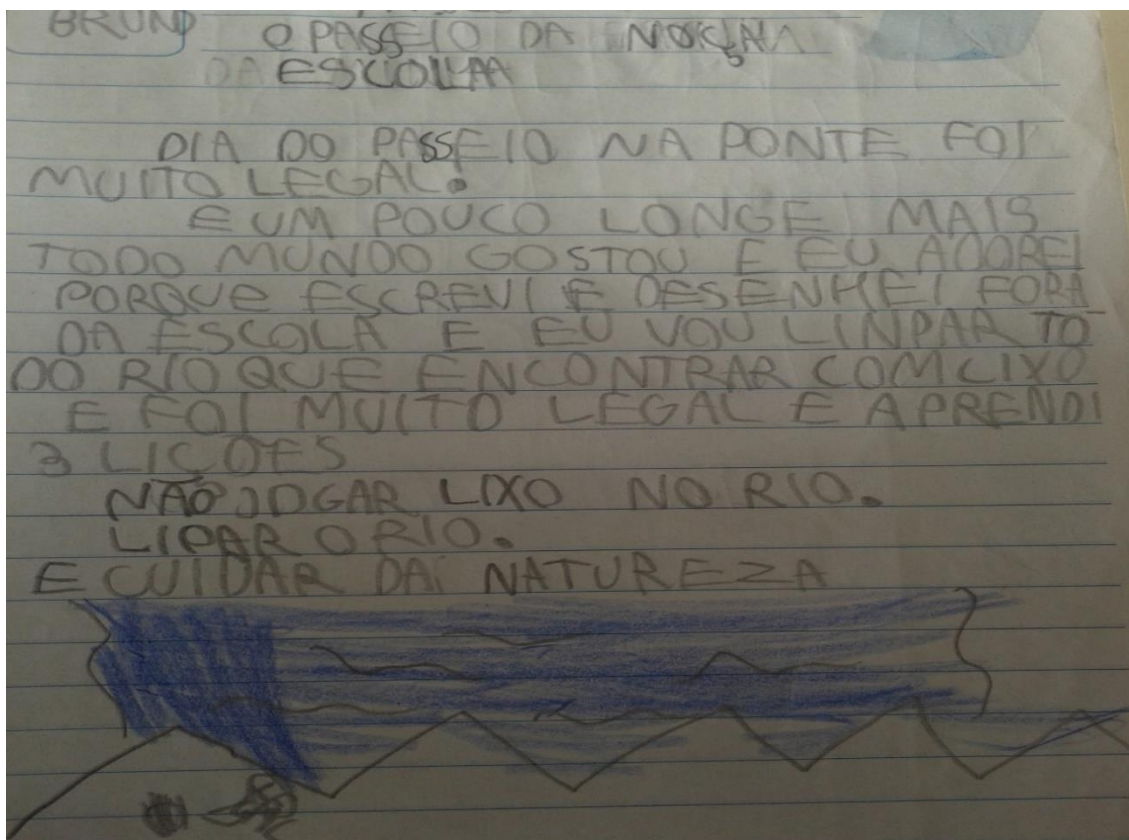 BRUNO
O PASSEIO DA NOSSA
DA ESCOLA
DIA DO PASSEIO NA PONTE FOI
MUITO LEGAL.
E UM POUCO LONGE MAIS
TODO MUNDO GOSTOU E EU ADOREI
PORQUE ESCREVI E DESENHEI FORA
DA ESCOLA E EU VOU LINPAR TO-
DO RIO QUE ENCONTRAR COM LIXO
E FOI MUITO LEGAL E APRENDI
3 LIÇOES
NÃO JOGAR LIXO NO RIO.
LIPAR O RIO.
E CUIDAR DA NATUREZA